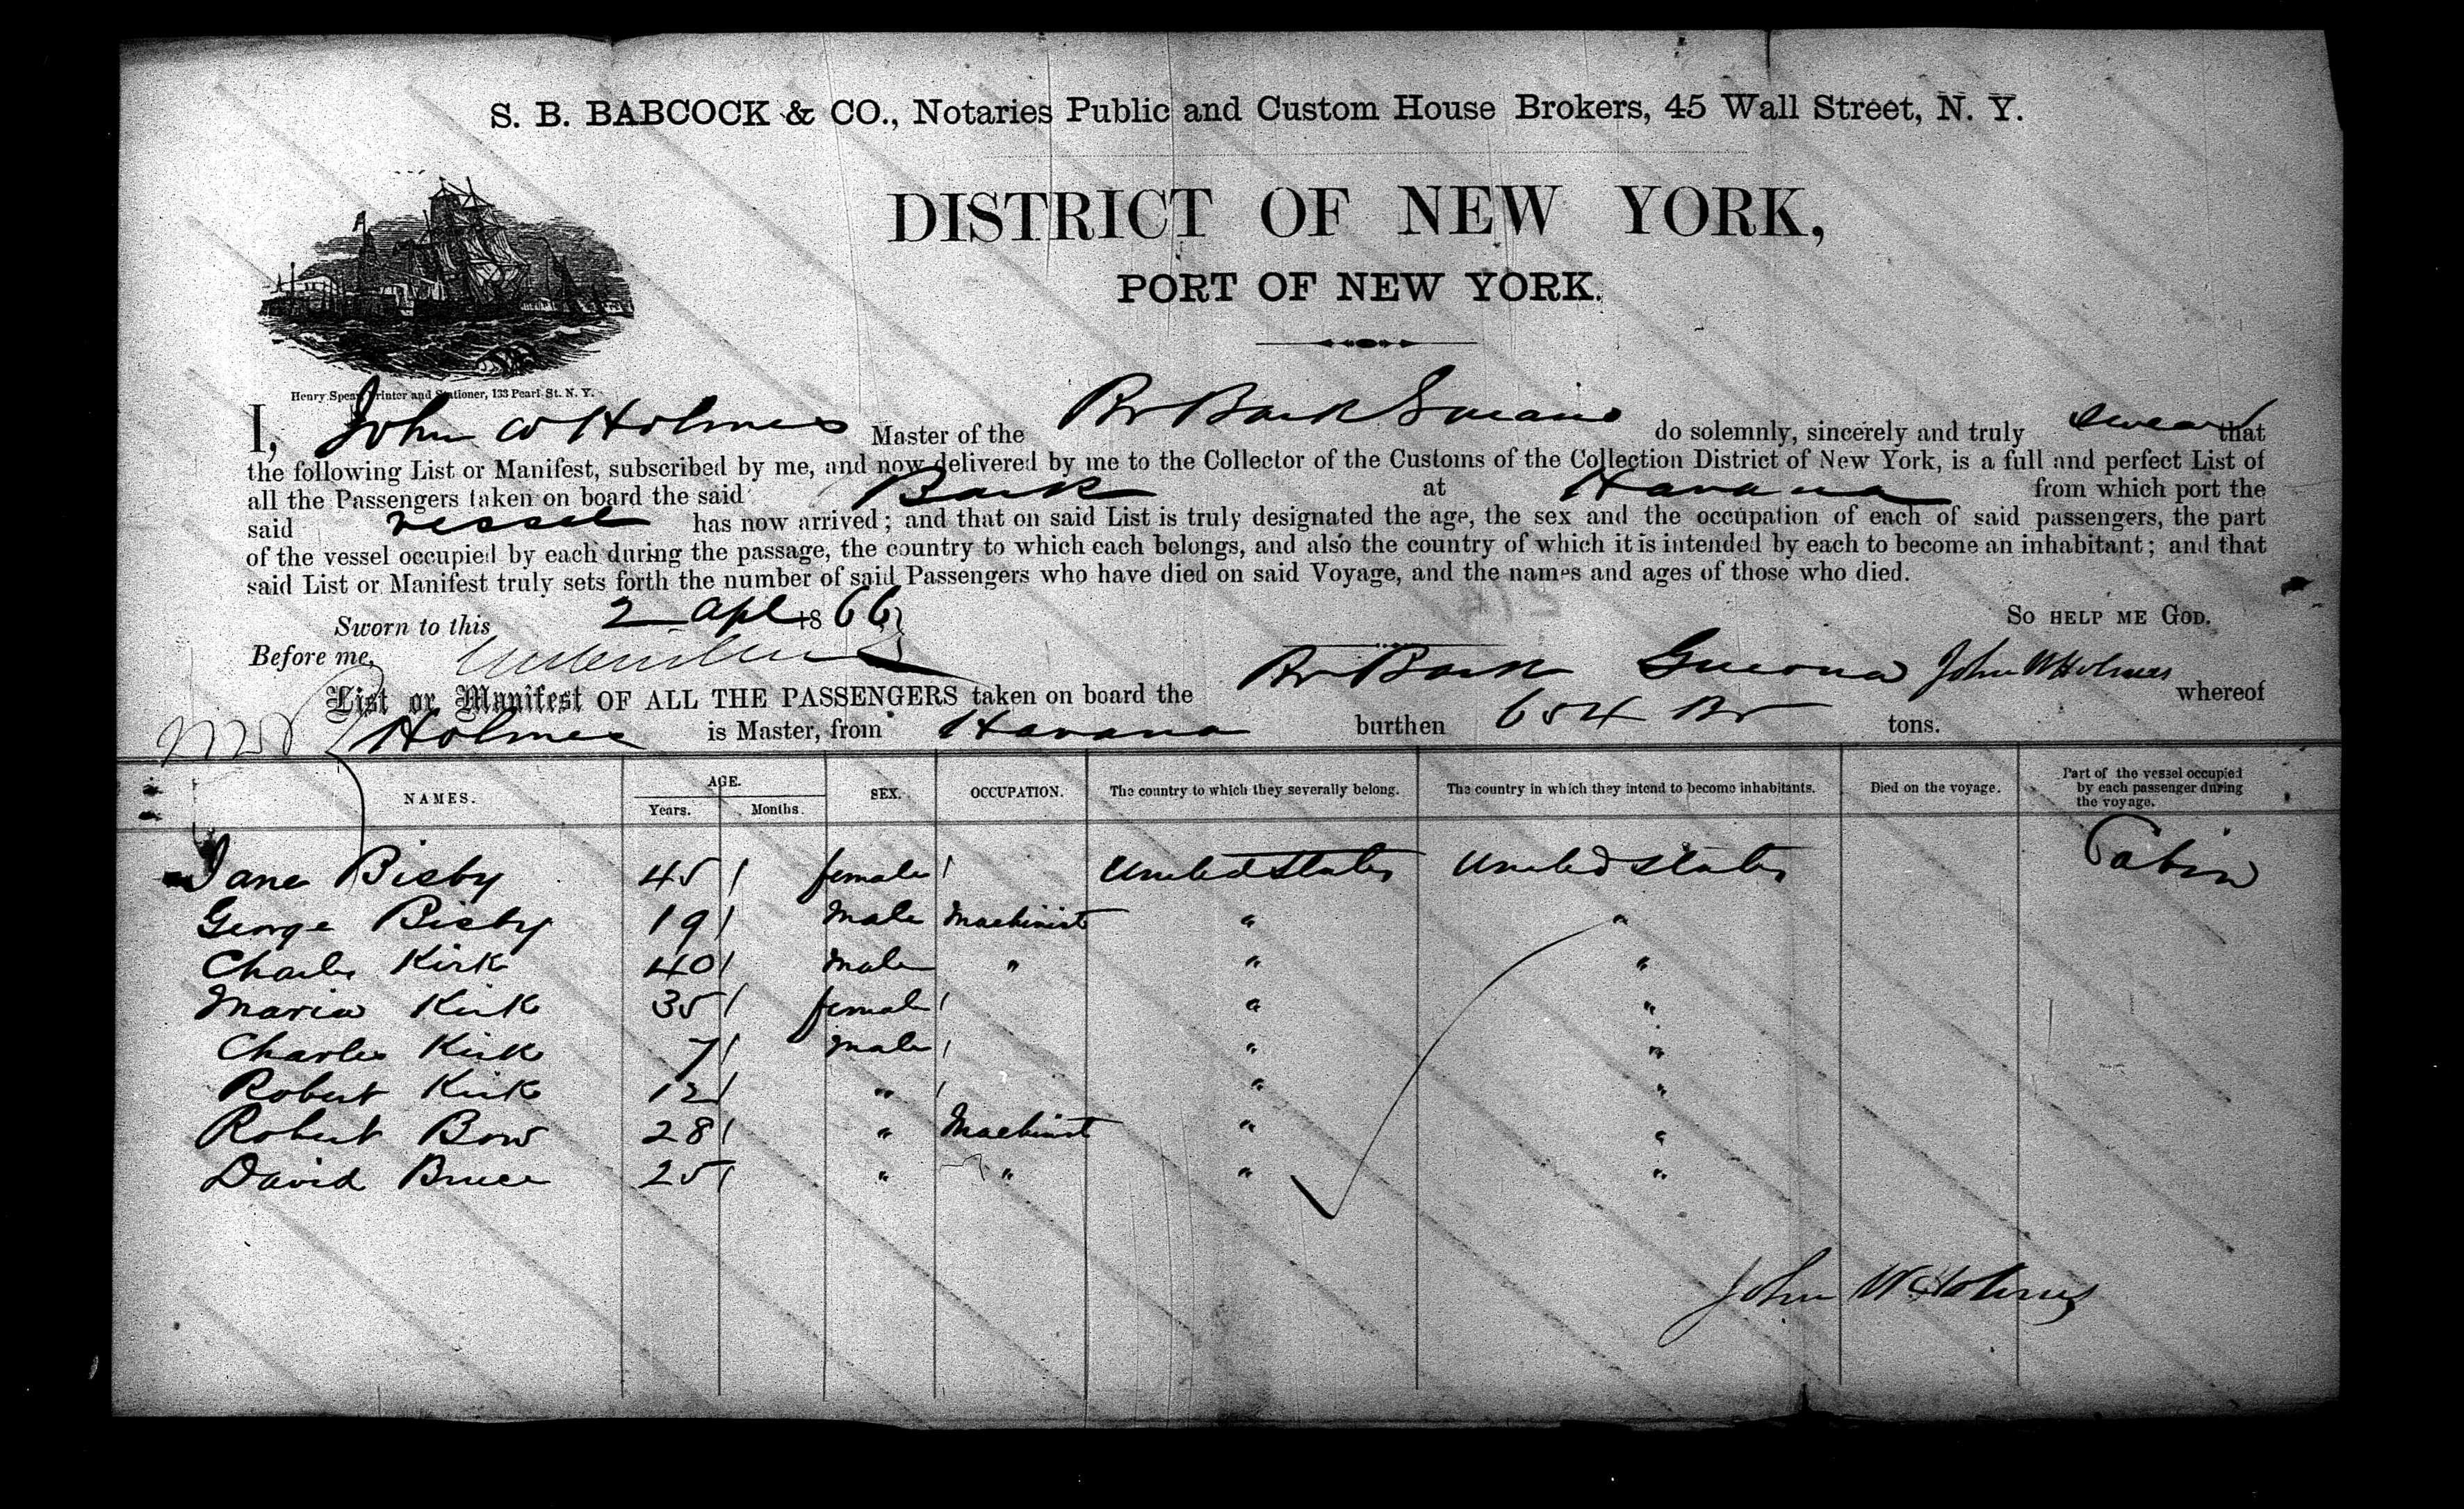 S. B. BABCOCK & CO., Notaries Public and Custom House Brokers, 45 Wall Street, N. Y.
DISTRICT OF NEW YORK,
PORT OF NEW YORK.
Henry Spear, Printer and Stationer, 133 Pearl St. N. Y.
I, John W Holmes Master of the Br Bark do solemnly, sincerely and truly swear that
the following List or Manifest, subscribed by me, and now delivered by me to the Collector of the Customs of the Collection District of New York, is a full and perfect List of
all the Passengers taken on board the said Bark at Havana from which port the
said vessel has now arrived; and that on said List is truly designated the age, the sex and the occupation of each of said passengers, the part
of the vessel occupied by each during the passage, the country to which each belongs, and also the country of which it is intended by each to become an inhabitant; and that
said List or Manifest truly sets forth the number of said Passengers who have died on said Voyage, and the names and ages of those who died.
Sworn to this 2 Apl 1866 SO HELP ME GOD.
Before me, John W Holmes
List or Manifest OF ALL THE PASSENGERS taken on board the Br Bark whereof
Holmes is Master, from Havana burthen 654 Br tons.
NAMES. AGE. Years. Months. SEX. OCCUPATION. The country to which they severally belong. The country in which they intend to become inhabitants. Died on the voyage. Part of the vessel occupied by each passenger during the voyage.
Jane Bisby 45 / female / United States United States Cabin
George Bisby 19 / Male Machinist " "
Charles Kirk 40 / Male " " "
Maria Kirk 35 / female / " "
Charles Kirk 7 / Male / " "
Robert Kirk 12 / " / " "
Robert Bow 28 / " Machinist " "
David Bruce 25 / " " " "
John W Holmes